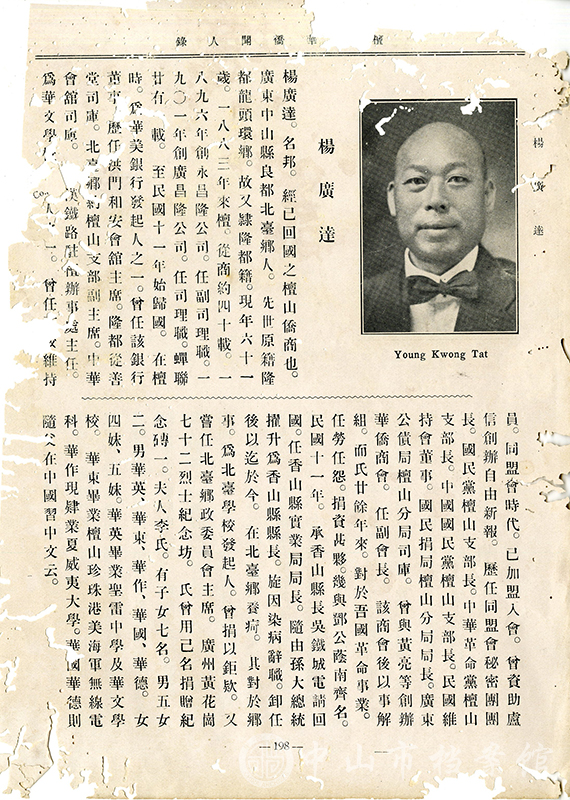 檀 華僑聞人錄
楊 廣 達
Young Kwong Tat
楊廣達
楊廣達。名邦。經已回國之檀山僑商也。
廣東中山縣良都北臺鄉人。先世原籍隆
都龍頭環鄉。故又隷隆都籍。現年六十一
歲。一八八三年來檀。從商約四十載。一
八九六年創永昌隆公司。任副司理職。一
九〇一年創廣昌隆公司。任司理職。蟬聯
廿有 載。至民國十一年始歸國。在檀
時。爲華美銀行發起人之一。曾任該銀行
董事。歷任洪門和安會館主席。隆都從善
堂司庫。北臺鄉 檀山支部副主席。中華
會舘司庫。 漢鐵路駐檀辦事處主任。
爲華文學 人 一。曾任 維持
員。同盟會時代。已加盟入會。曾資助盧
信創辦自由新報。歷任同盟會秘密團團
長。國民黨檀山支部長。中華革命黨檀山
支部長。中國國民黨檀山支部長。民國維
持會董事。國民捐局檀山分局局長。廣東
公債局檀山分局司庫。曾與黃亮等創辦
華僑商會。任副會長。該商會後以事解
組。而氏廿餘年來。對於吾國革命事業。
任勞任怨。捐資甚夥。幾與鄧公蔭南齊名。
民國十一年。承香山縣長吳鐵城電請回
國。任香山縣實業局局長。隨由孫大總統
擢升爲香山縣縣長。旋因染病辭職。卸任
後以迄於今。在北臺鄉養疴。其對於鄉
事。爲北臺學校發起人。曾捐以鉅欵。又
嘗任北臺鄉政委員會主席。廣州黃花崗
七十二烈士紀念坊。氏曾用己名捐贈紀
念磚一。夫人李氏。有子女七名。男五女
二。男華英、華東、華作、華國、華德。女
四妹、五妹。華英畢業聖雷中學及華文學
校。華東畢業檀山珍珠港美海軍無線電
科。華作現肄業夏威夷大學。華國華德則
隨父在中國習中文云。
—198—
中山市档案馆